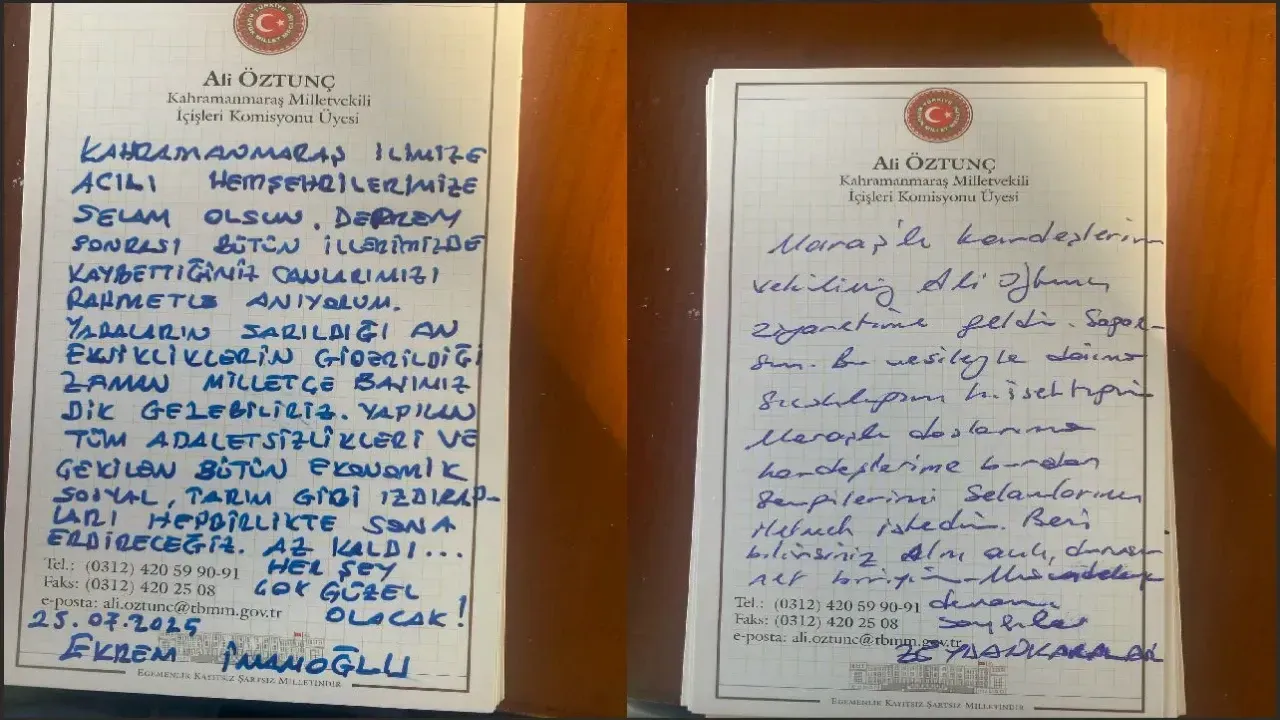 TÜRKİYE BÜYÜK MİLLET MECLİSİ
Ali ÖZTUNÇ
Kahramanmaraş Milletvekili
İçişleri Komisyonu Üyesi
KAHRAMANMARAŞ İLİMİZE
ACILI HEMŞEHRİLERİMİZE
SELAM OLSUN. DEPREM
SONRASI BÜTÜN İLLERİMİZDE
KAYBETTİĞİMİZ CANLARIMIZI
RAHMETLE ANIYORUM.
YARALARIN SARILDIĞI AN
EKSİKLİKLERİN GİDERİLDİĞİ
ZAMAN MİLLETÇE BAŞIMIZ
DİK GEZEBİLİRİZ. YAPILAN
TÜM ADALETSİZLİKLERİ VE
ÇEKİLEN BÜTÜN EKONOMİK
SOSYAL, TARIM GİBİ IZDIRAP-
LARI HEPBİRLİKTE SONA
ERDİRECEĞİZ. AZ KALDI...
HER ŞEY
ÇOK GÜZEL
OLACAK!
Tel.: (0312) 420 59 90-91
Faks: (0312) 420 25 08
e-posta: ali.oztunc@tbmm.gov.tr
25.07.2025
EKREM İMAMOĞLU
EGEMENLİK KAYITSIZ ŞARTSIZ MİLLETİNDİR
TÜRKİYE BÜYÜK MİLLET MECLİSİ
Ali ÖZTUNÇ
Kahramanmaraş Milletvekili
İçişleri Komisyonu Üyesi
Maraşlı kardeşlerim
vekilimiz Ali Öztunç
ziyaretime geldi. Sağol-
sun. Bu vesileyle daima
sıcaklığını hissettiğim
Maraşlı dostlarıma
kardeşlerime buradan
sevgilerimi selamlarımı
iletmek istedim. Beni
bilirsiniz Alnı açık, duruşu
net biriyim. Mücadeleye
devam
saygılar
Tel.: (0312) 420 59 90-91
Faks: (0312) 420 25 08
e-posta: ali.oztunc@tbmm.gov.tr
ZEYDAN KARALAR
EGEMENLİK KAYITSIZ ŞARTSIZ MİLLETİNDİR